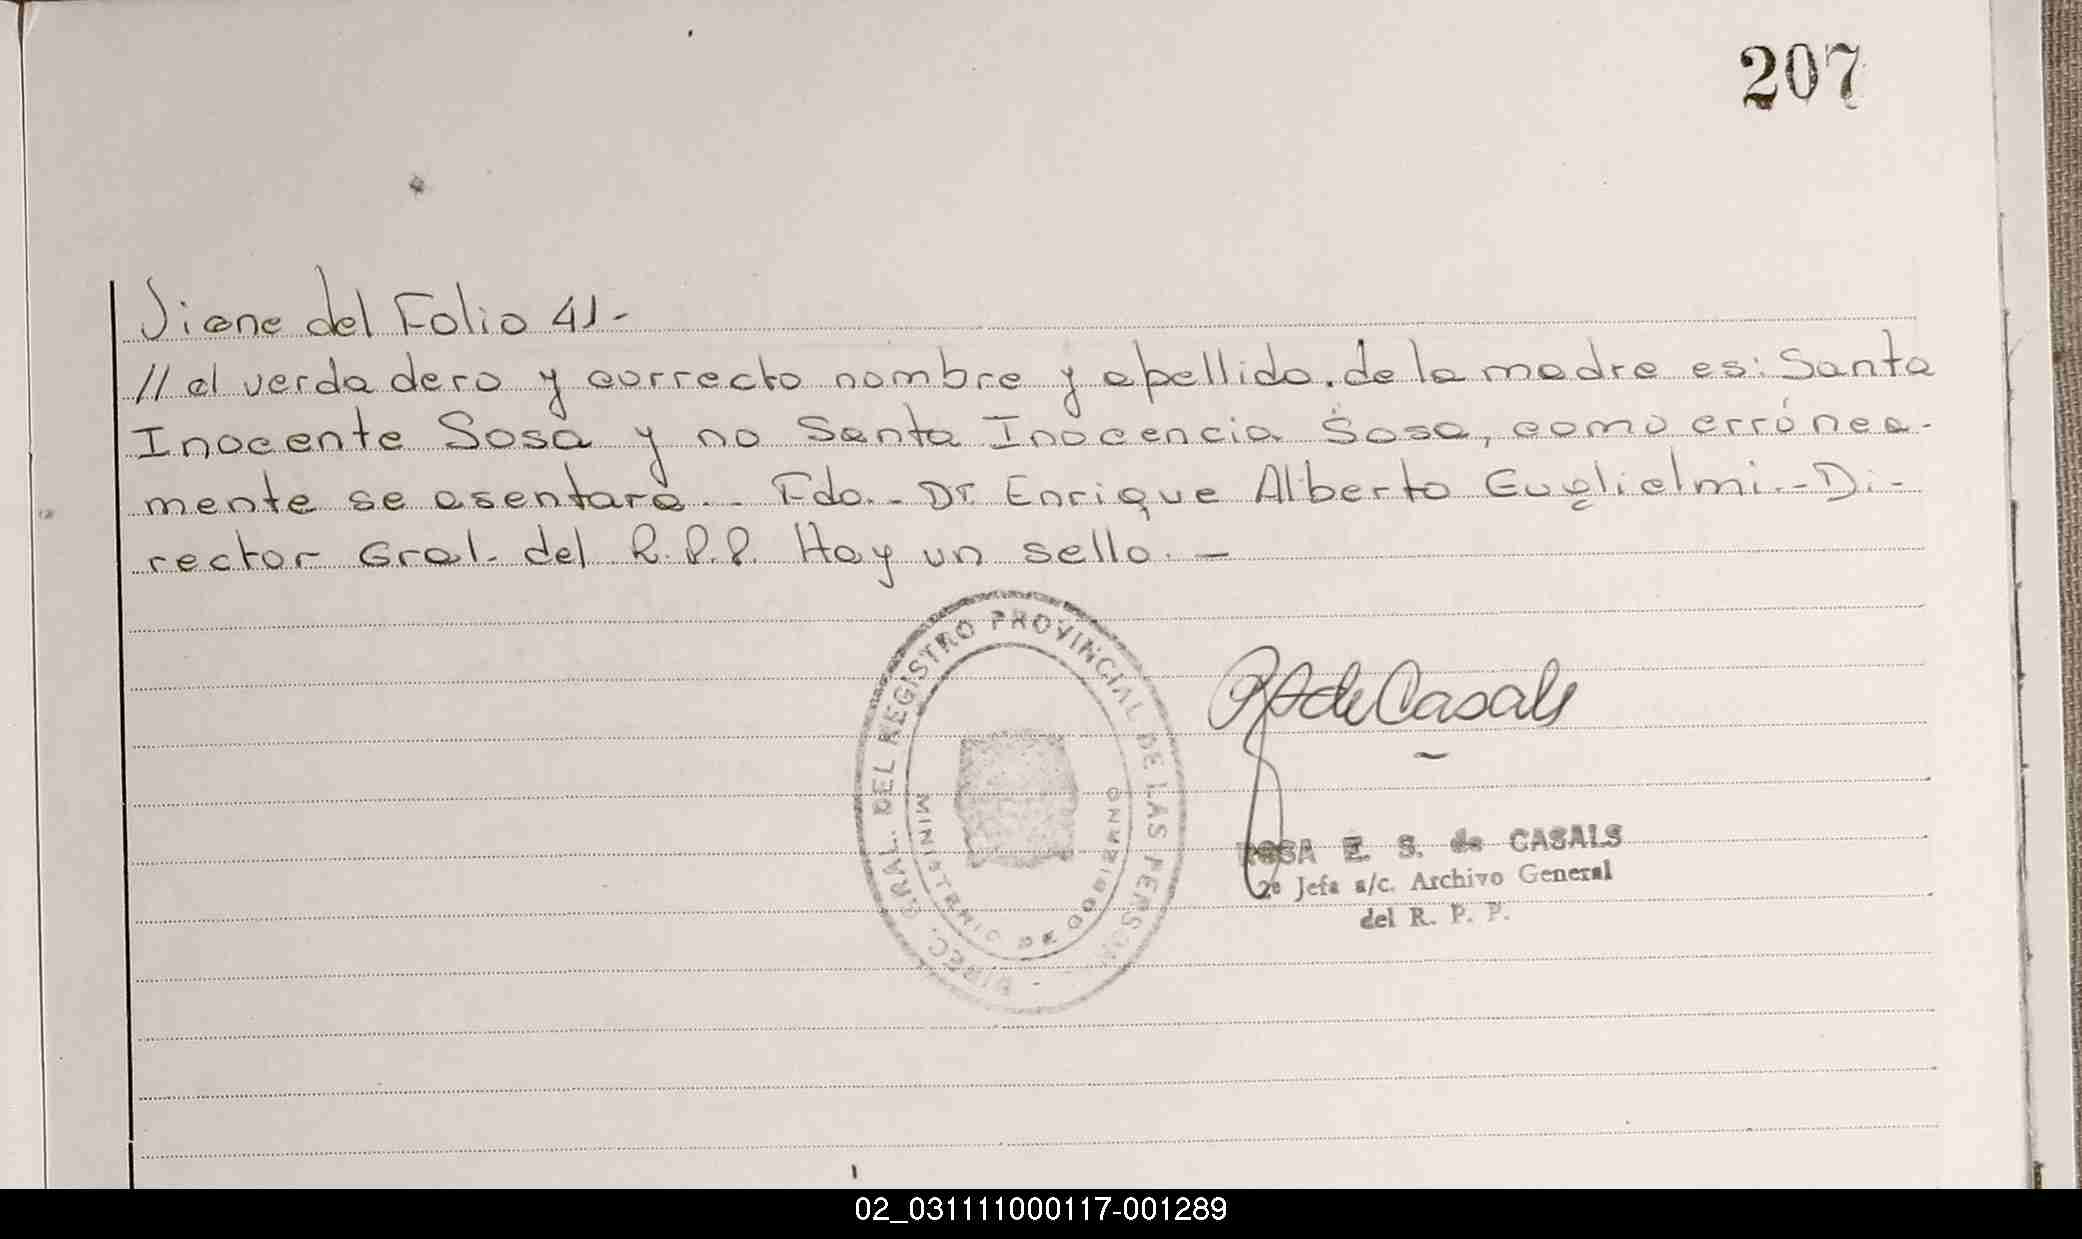 207
Viene del Folio 41-
// el verdadero y correcto nombre y apellido de la madre es: Santa
Inocente Sosa y no Santa Inocencia Sosa, como errónea-
mente se asentara.- Fdo.- Dr. Enrique Alberto Guglielmi.- Di-
rector Gral. del R.P.P. Hay un sello.-
DIREC. GRAL. DEL REGISTRO PROVINCIAL DE LAS PERSON
MINISTERIO DE GOBIERNO
de Casals
ROSA E. S. de CASALS
2º Jefa a/c. Archivo General
del R. P. P.
02_031111000117-001289